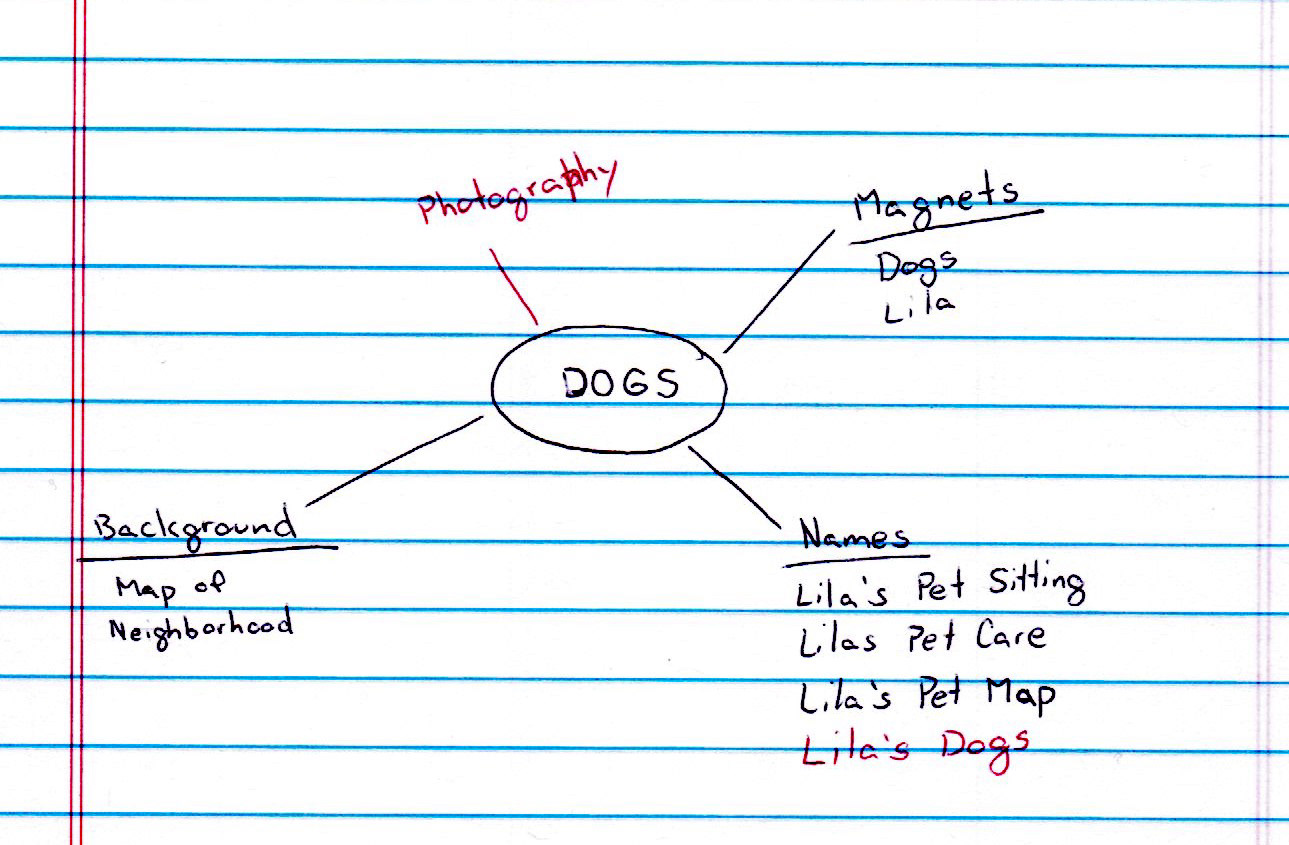 Photography
Magnets
Dogs
Lila
DOGS
Background
Map of
Neighborhood
Names
Lila's Pet Sitting
Lilas Pet Care
Lila's Pet Map
Lila's Dogs